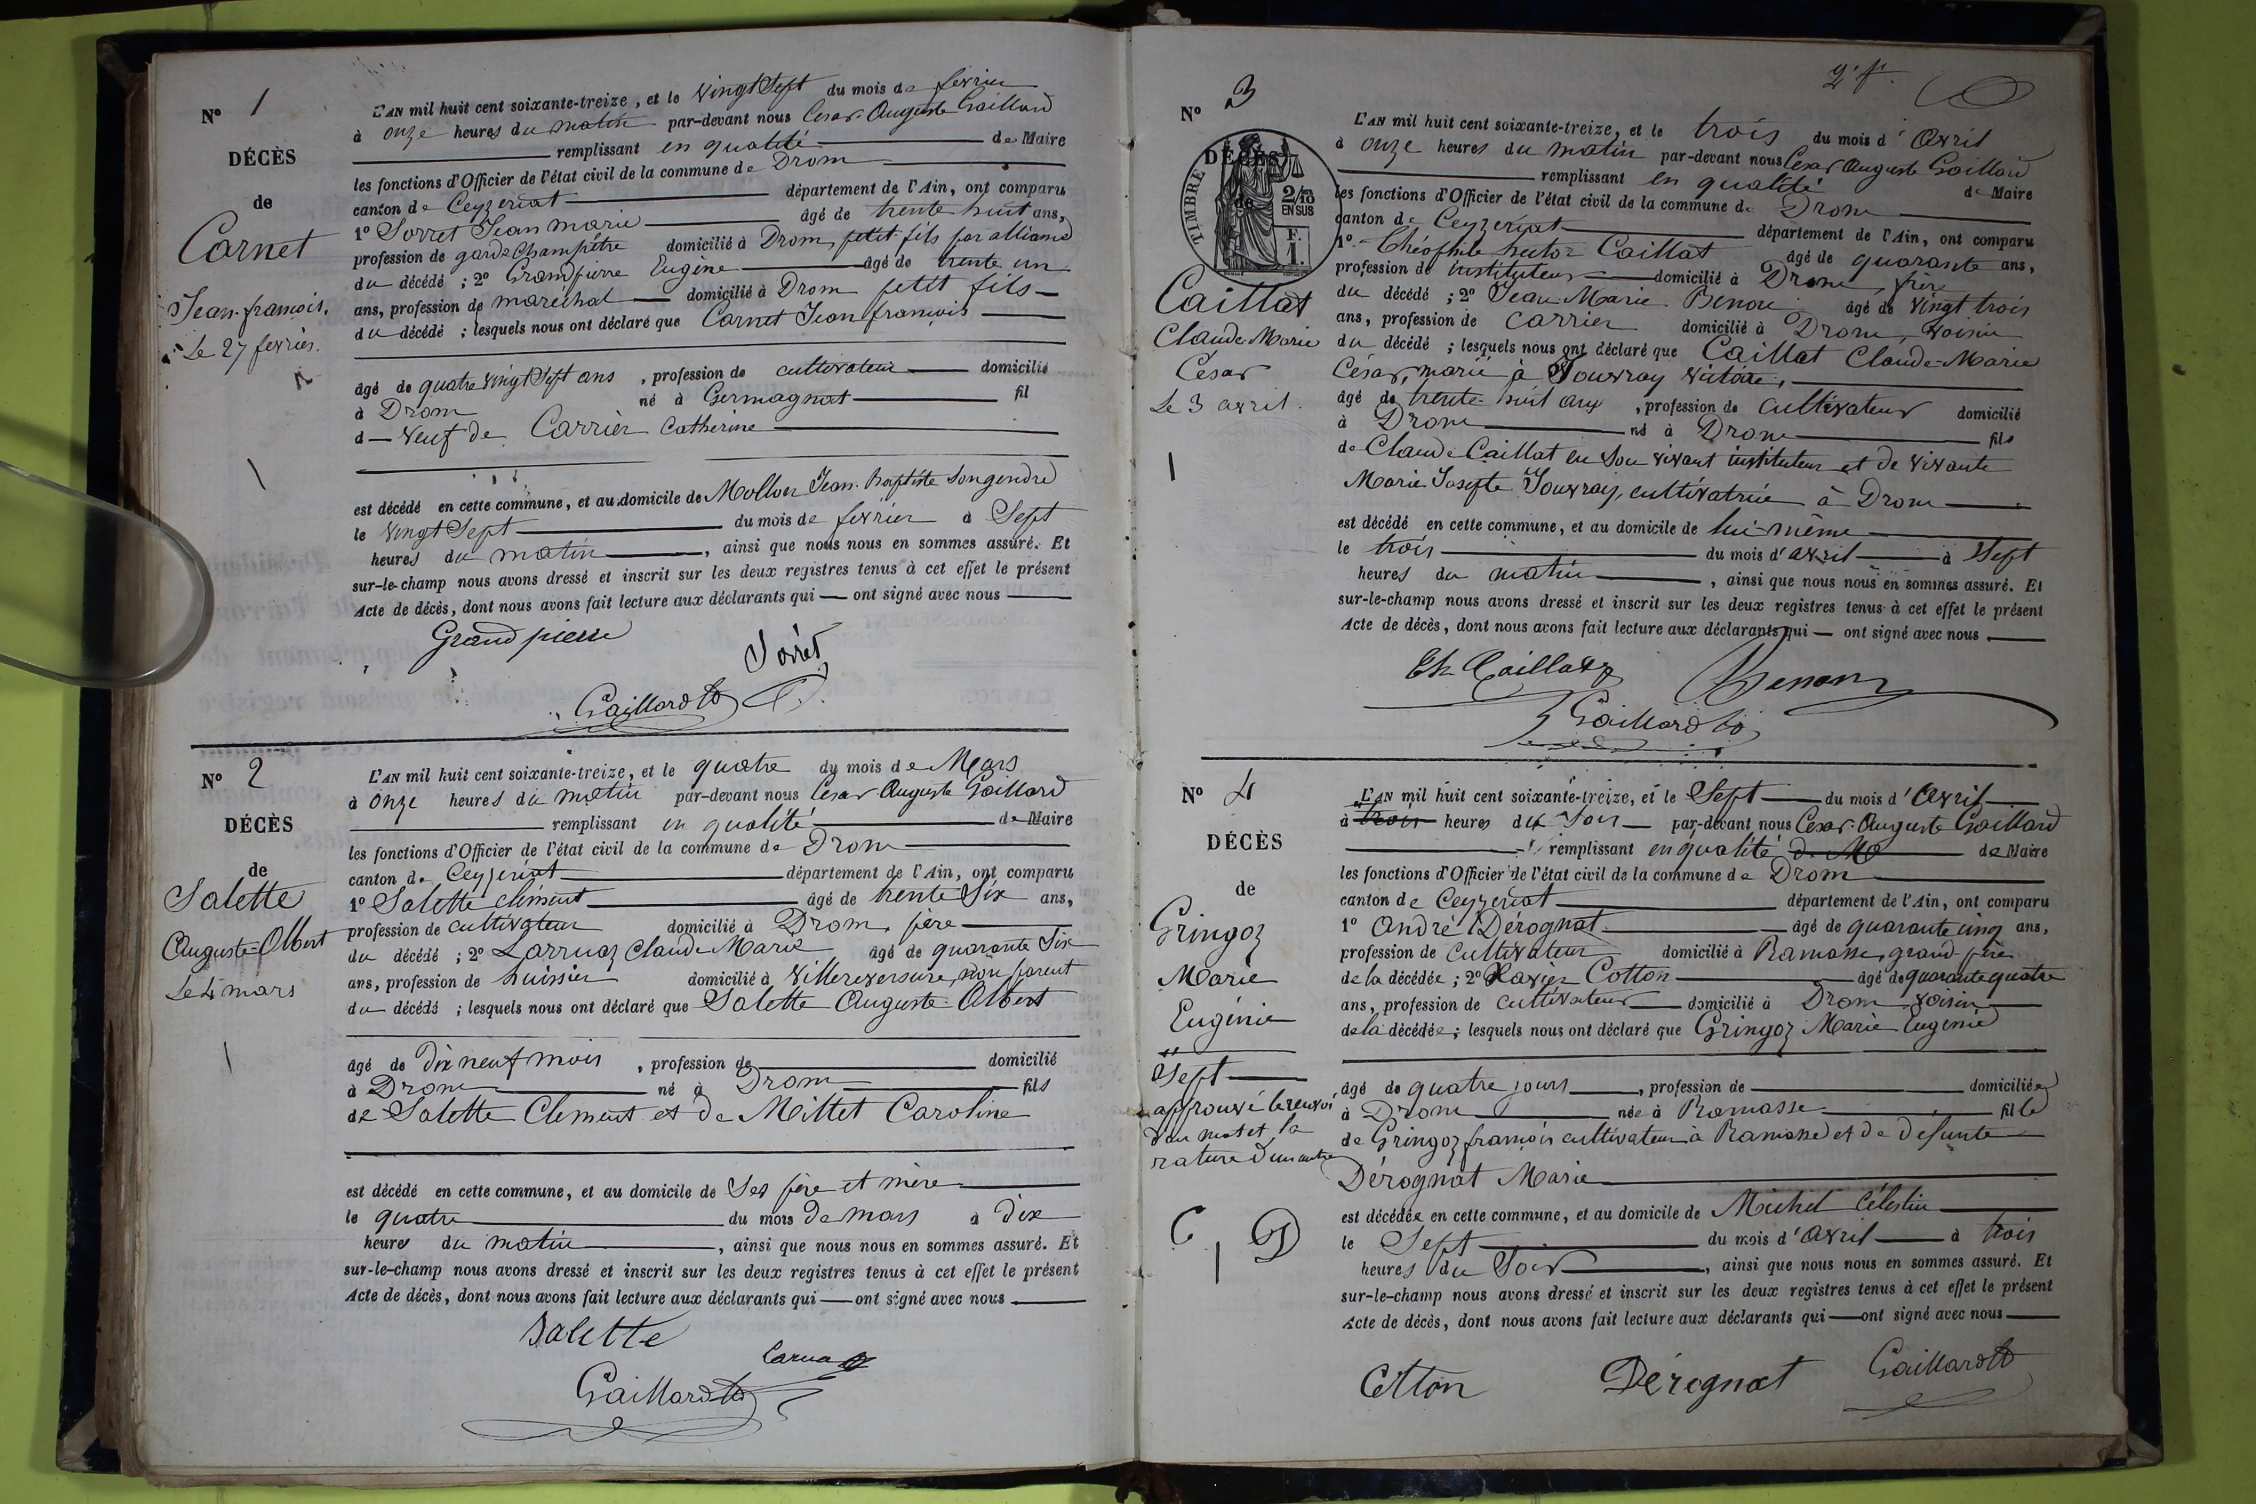 N° 1
DÉCÈS
de
Carnet
Jean-françois.
Le 27 février.
L'AN mil huit cent soixante-treize, et le vingt Sept du mois de février
à onze heures du matin par-devant nous Cesar Auguste Gaillard
remplissant en qualité de Maire
les fonctions d'Officier de l'état civil de la commune de Drom
canton de Ceyzeriat département de l'Ain, ont comparu
1° Sorret Jean marie âgé de trente huit ans,
profession de garde champêtre domicilié à Drom, petit fils par alliance
du décédé ; 2° Grandpierre Eugène âgé de trente un
ans, profession de maréchal domicilié à Drom petit fils
du décédé ; lesquels nous ont déclaré que Carnet Jean françois
âgé de quatre vingt Sept ans, profession de cultivateur domicilié
à Drom né à Germagnat fil
d veuf de Carrier Catherine
est décédé en cette commune, et au domicile de Mollon Jean-Baptiste Son gendre
le vingt Sept du mois de février à Sept
heures du matin, ainsi que nous nous en sommes assuré. Et
sur-le-champ nous avons dressé et inscrit sur les deux registres tenus à cet effet le présent
Acte de décès, dont nous avons fait lecture aux déclarants qui ont signé avec nous
Grandpierre
Sorret
Gaillard
N° 2
DÉCÈS
de
Salette
Auguste-Albert
Le 4 mars
L'AN mil huit cent soixante-treize, et le quatre du mois de Mars
à onze heures du matin par-devant nous Cesar Auguste Gaillard
remplissant en qualité de Maire
les fonctions d'Officier de l'état civil de la commune de Drom
canton de Ceyzériat département de l'Ain, ont comparu
1° Salette clément âgé de trente Six ans,
profession de cultivateur domicilié à Drom, père
du décédé ; 2° Claude Marie âgé de quarante Six
ans, profession de huissier domicilié à Villereversure, non parent
du décédé ; lesquels nous ont déclaré que Salette Auguste-Albert
âgé de dix neuf mois, profession de domicilié
à Drom né à Drom fils
de Salette Clement et de Millet Caroline
est décédé en cette commune, et au domicile de Ses père et mère
le quatre du mois de mars à dix
heures du matin, ainsi que nous nous en sommes assuré. Et
sur-le-champ nous avons dressé et inscrit sur les deux registres tenus à cet effet le présent
Acte de décès, dont nous avons fait lecture aux déclarants qui ont signé avec nous
Salette
Gaillard
N° 3
DÉCÈS
de
TIMBRE
2/10
EN SUS
F.
1.
Caillat
Claude-Marie
César
Le 3 avril.
L'AN mil huit cent soixante-treize, et le trois du mois d'Avril
à onze heures du matin par-devant nous Cesar Auguste Gaillard
remplissant en qualité de Maire
les fonctions d'Officier de l'état civil de la commune de Drom
canton de Ceyzeriat département de l'Ain, ont comparu
1° Théophile hector Caillat âgé de quarante ans,
profession de instituteur domicilié à Drom, frère
du décédé ; 2° Jean Marie Benon âgé de vingt trois
ans, profession de carrier domicilié à Drom, voisin
du décédé ; lesquels nous ont déclaré que Caillat Claude-Marie
César, marié à Jouvray victoire,
âgé de trente huit ans, profession de cultivateur domicilié
à Drom né à Drom fils
de Claude Caillat en Son vivant instituteur et de vivante
Marie Josepte Jouvray, cultivatrice à Drom
est décédé en cette commune, et au domicile de lui-même
le trois du mois d'avril à Sept
heures du matin, ainsi que nous nous en sommes assuré. Et
sur-le-champ nous avons dressé et inscrit sur les deux registres tenus à cet effet le présent
Acte de décès, dont nous avons fait lecture aux déclarants qui ont signé avec nous
Th Caillat
Benon
Gaillard
N° 4
DÉCÈS
de
Gringoz
Marie
Eugénie
Sept
approuvé le renvoi
d'un mot et la
rature d'un autre
C D
L'AN mil huit cent soixante-treize, et le Sept du mois d'Avril
à trois heures du Soir par-devant nous Cesar-Auguste Gaillard
remplissant en qualité de Ma de Maire
les fonctions d'Officier de l'état civil de la commune de Drom
canton de Ceyzeriat département de l'Ain, ont comparu
1° André Dérognat âgé de quarante cinq ans,
profession de cultivateur domicilié à Ramasse, grand père
de la décédée ; 2° Xavier Cotton âgé de quarante quatre
ans, profession de cultivateur domicilié à Drom voisin
de la décédée ; lesquels nous ont déclaré que Gringoz Marie Eugénie
âgé de quatre jours, profession de domiciliée
à Drom née à Ramasse fille
de Gringoz françois cultivateur à Ramasse et de défunte
Dérognat Marie
est décédée en cette commune, et au domicile de Michel Célestin
le Sept du mois d'avril à trois
heures du Soir, ainsi que nous nous en sommes assuré. Et
sur-le-champ nous avons dressé et inscrit sur les deux registres tenus à cet effet le présent
Acte de décès, dont nous avons fait lecture aux déclarants qui ont signé avec nous
Cotton
Dérognat
Gaillard